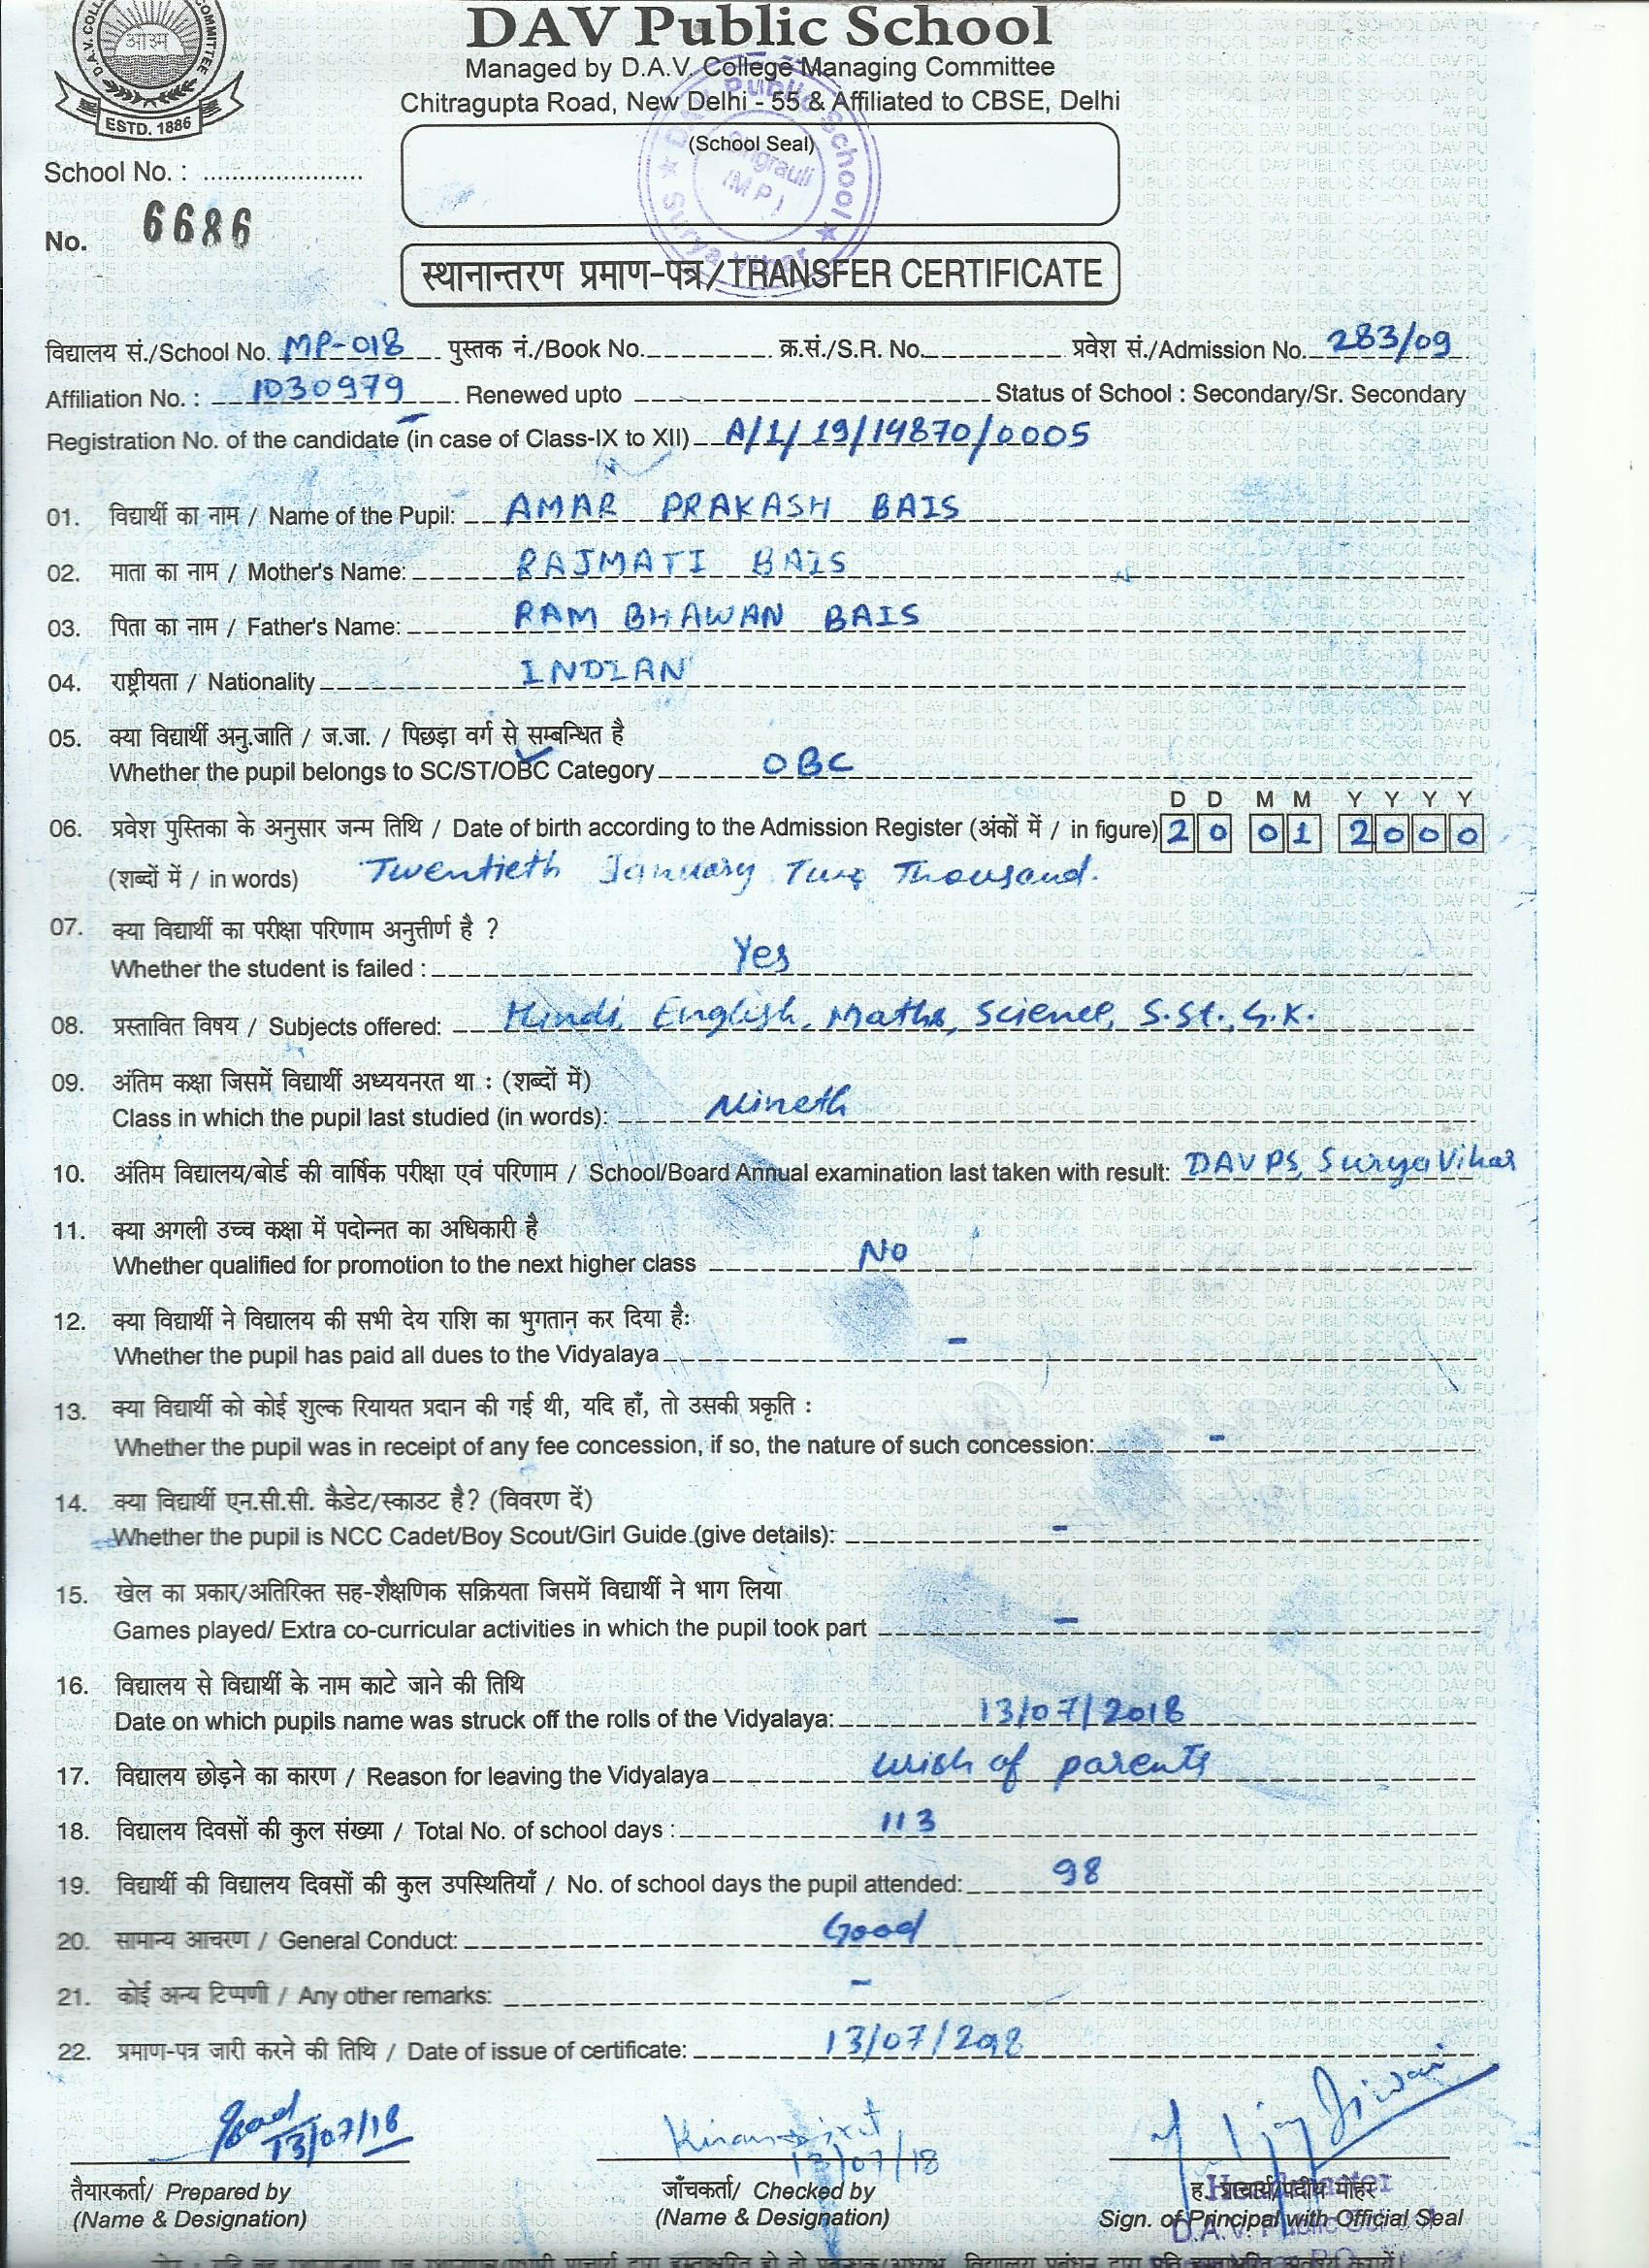 DAV Public School
Managed by D.A.V. College Managing Committee
Chitragupta Road, New Delhi - 55 & Affiliated to CBSE, Delhi
ESTD. 1886
(School Seal)
DAV Public School
Surya Vihar
(M P)
School No. : .....................
No. 6686
स्थानान्तरण प्रमाण-पत्र/TRANSFER CERTIFICATE
विद्यालय सं./School No. MP-018 पुस्तक नं./Book No. क्र.सं./S.R. No. प्रवेश सं./Admission No. 283/09
Affiliation No. : 1030979 Renewed upto Status of School : Secondary/Sr. Secondary
Registration No. of the candidate (in case of Class-IX to XII) A/1/19/14870/0005
01. विद्यार्थी का नाम / Name of the Pupil: AMAR PRAKASH BAIS
02. माता का नाम / Mother's Name: RAJMATI BAIS
03. पिता का नाम / Father's Name: RAM BHAWAN BAIS
04. राष्ट्रीयता / Nationality INDIAN
05. क्या विद्यार्थी अनु.जाति / ज.जा. / पिछड़ा वर्ग से सम्बन्धित है
Whether the pupil belongs to SC/ST/OBC Category OBC
D D M M Y Y Y Y
06. प्रवेश पुस्तिका के अनुसार जन्म तिथि / Date of birth according to the Admission Register (अंकों में / in figure) 2 0 0 1 2 0 0 0
(शब्दों में / in words) Twentieth January Two Thousand.
07. क्या विद्यार्थी का परीक्षा परिणाम अनुत्तीर्ण है ?
Whether the student is failed : Yes
08. प्रस्तावित विषय / Subjects offered: Hindi, English, Maths, Science, S.St., G.K.
09. अंतिम कक्षा जिसमें विद्यार्थी अध्ययनरत था : (शब्दों में)
Class in which the pupil last studied (in words): Nineth
10. अंतिम विद्यालय/बोर्ड की वार्षिक परीक्षा एवं परिणाम / School/Board Annual examination last taken with result: DAVPS, Surya Vihar
11. क्या अगली उच्च कक्षा में पदोन्नत का अधिकारी है
Whether qualified for promotion to the next higher class No
12. क्या विद्यार्थी ने विद्यालय की सभी देय राशि का भुगतान कर दिया है:
Whether the pupil has paid all dues to the Vidyalaya -
13. क्या विद्यार्थी को कोई शुल्क रियायत प्रदान की गई थी, यदि हाँ, तो उसकी प्रकृति :
Whether the pupil was in receipt of any fee concession, if so, the nature of such concession: -
14. क्या विद्यार्थी एन.सी.सी. कैडेट/स्काउट है? (विवरण दें)
Whether the pupil is NCC Cadet/Boy Scout/Girl Guide (give details): -
15. खेल का प्रकार/अतिरिक्त सह-शैक्षणिक सक्रियता जिसमें विद्यार्थी ने भाग लिया
Games played/ Extra co-curricular activities in which the pupil took part -
16. विद्यालय से विद्यार्थी के नाम काटे जाने की तिथि
Date on which pupils name was struck off the rolls of the Vidyalaya: 13/07/2018
17. विद्यालय छोड़ने का कारण / Reason for leaving the Vidyalaya wish of parents
18. विद्यालय दिवसों की कुल संख्या / Total No. of school days : 113
19. विद्यार्थी की विद्यालय दिवसों की कुल उपस्थितियाँ / No. of school days the pupil attended: 98
20. सामान्य आचरण / General Conduct: Good
21. कोई अन्य टिप्पणी / Any other remarks: -
22. प्रमाण-पत्र जारी करने की तिथि / Date of issue of certificate: 13/07/2018
13/07/18
Kiran Dixit
13/07/18
तैयारकर्ता/ Prepared by जाँचकर्ता/ Checked by ह. प्राचार्य/पदीय मोहर
(Name & Designation) (Name & Designation) Sign. of Principal with Official Seal
Headmaster
D.A.V. Public School